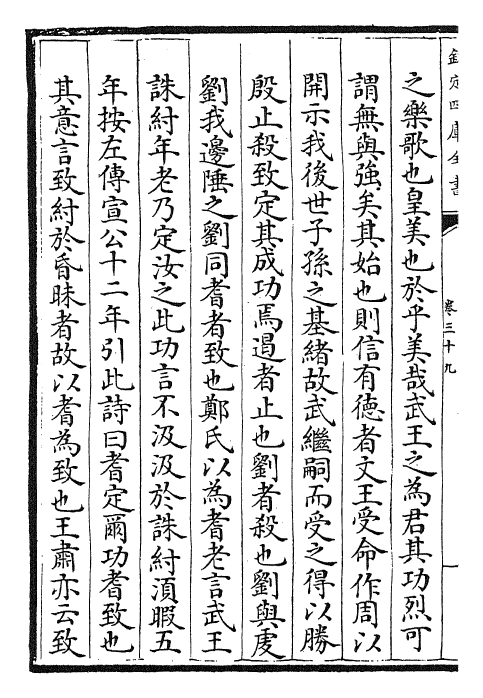 欽定四庫全書
卷三十九
之樂歌也皇美也於乎美哉武王之為君其功烈可
謂無與強矣其始也則信有德者文王受命作周以
開示我後世子孫之基緒故武繼嗣而受之得以勝
殷止殺致定其成功焉遏者止也劉者殺也劉與虔
劉我邊陲之劉同耆者致也鄭氏以為耆老言武王
誅紂年老乃定汝之此功言不汲汲於誅紂湏暇五
年按左傳宣公十二年引此詩曰耆定爾功耆致也
其意言致紂於昏昧者故以耆為致也王肅亦云致